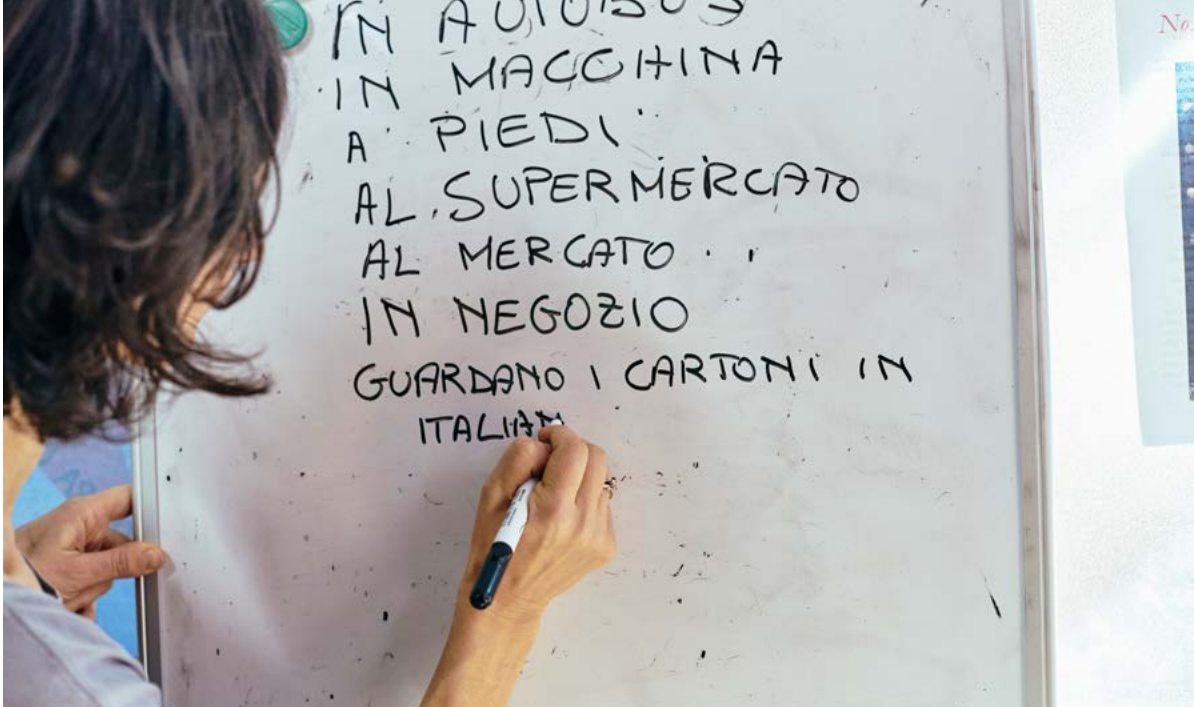 IN AUTOBUS
IN MACCHINA
A PIEDI
AL SUPERMERCATO
AL MERCATO
IN NEGOZIO
GUARDANO I CARTONI IN
ITALIAN
No